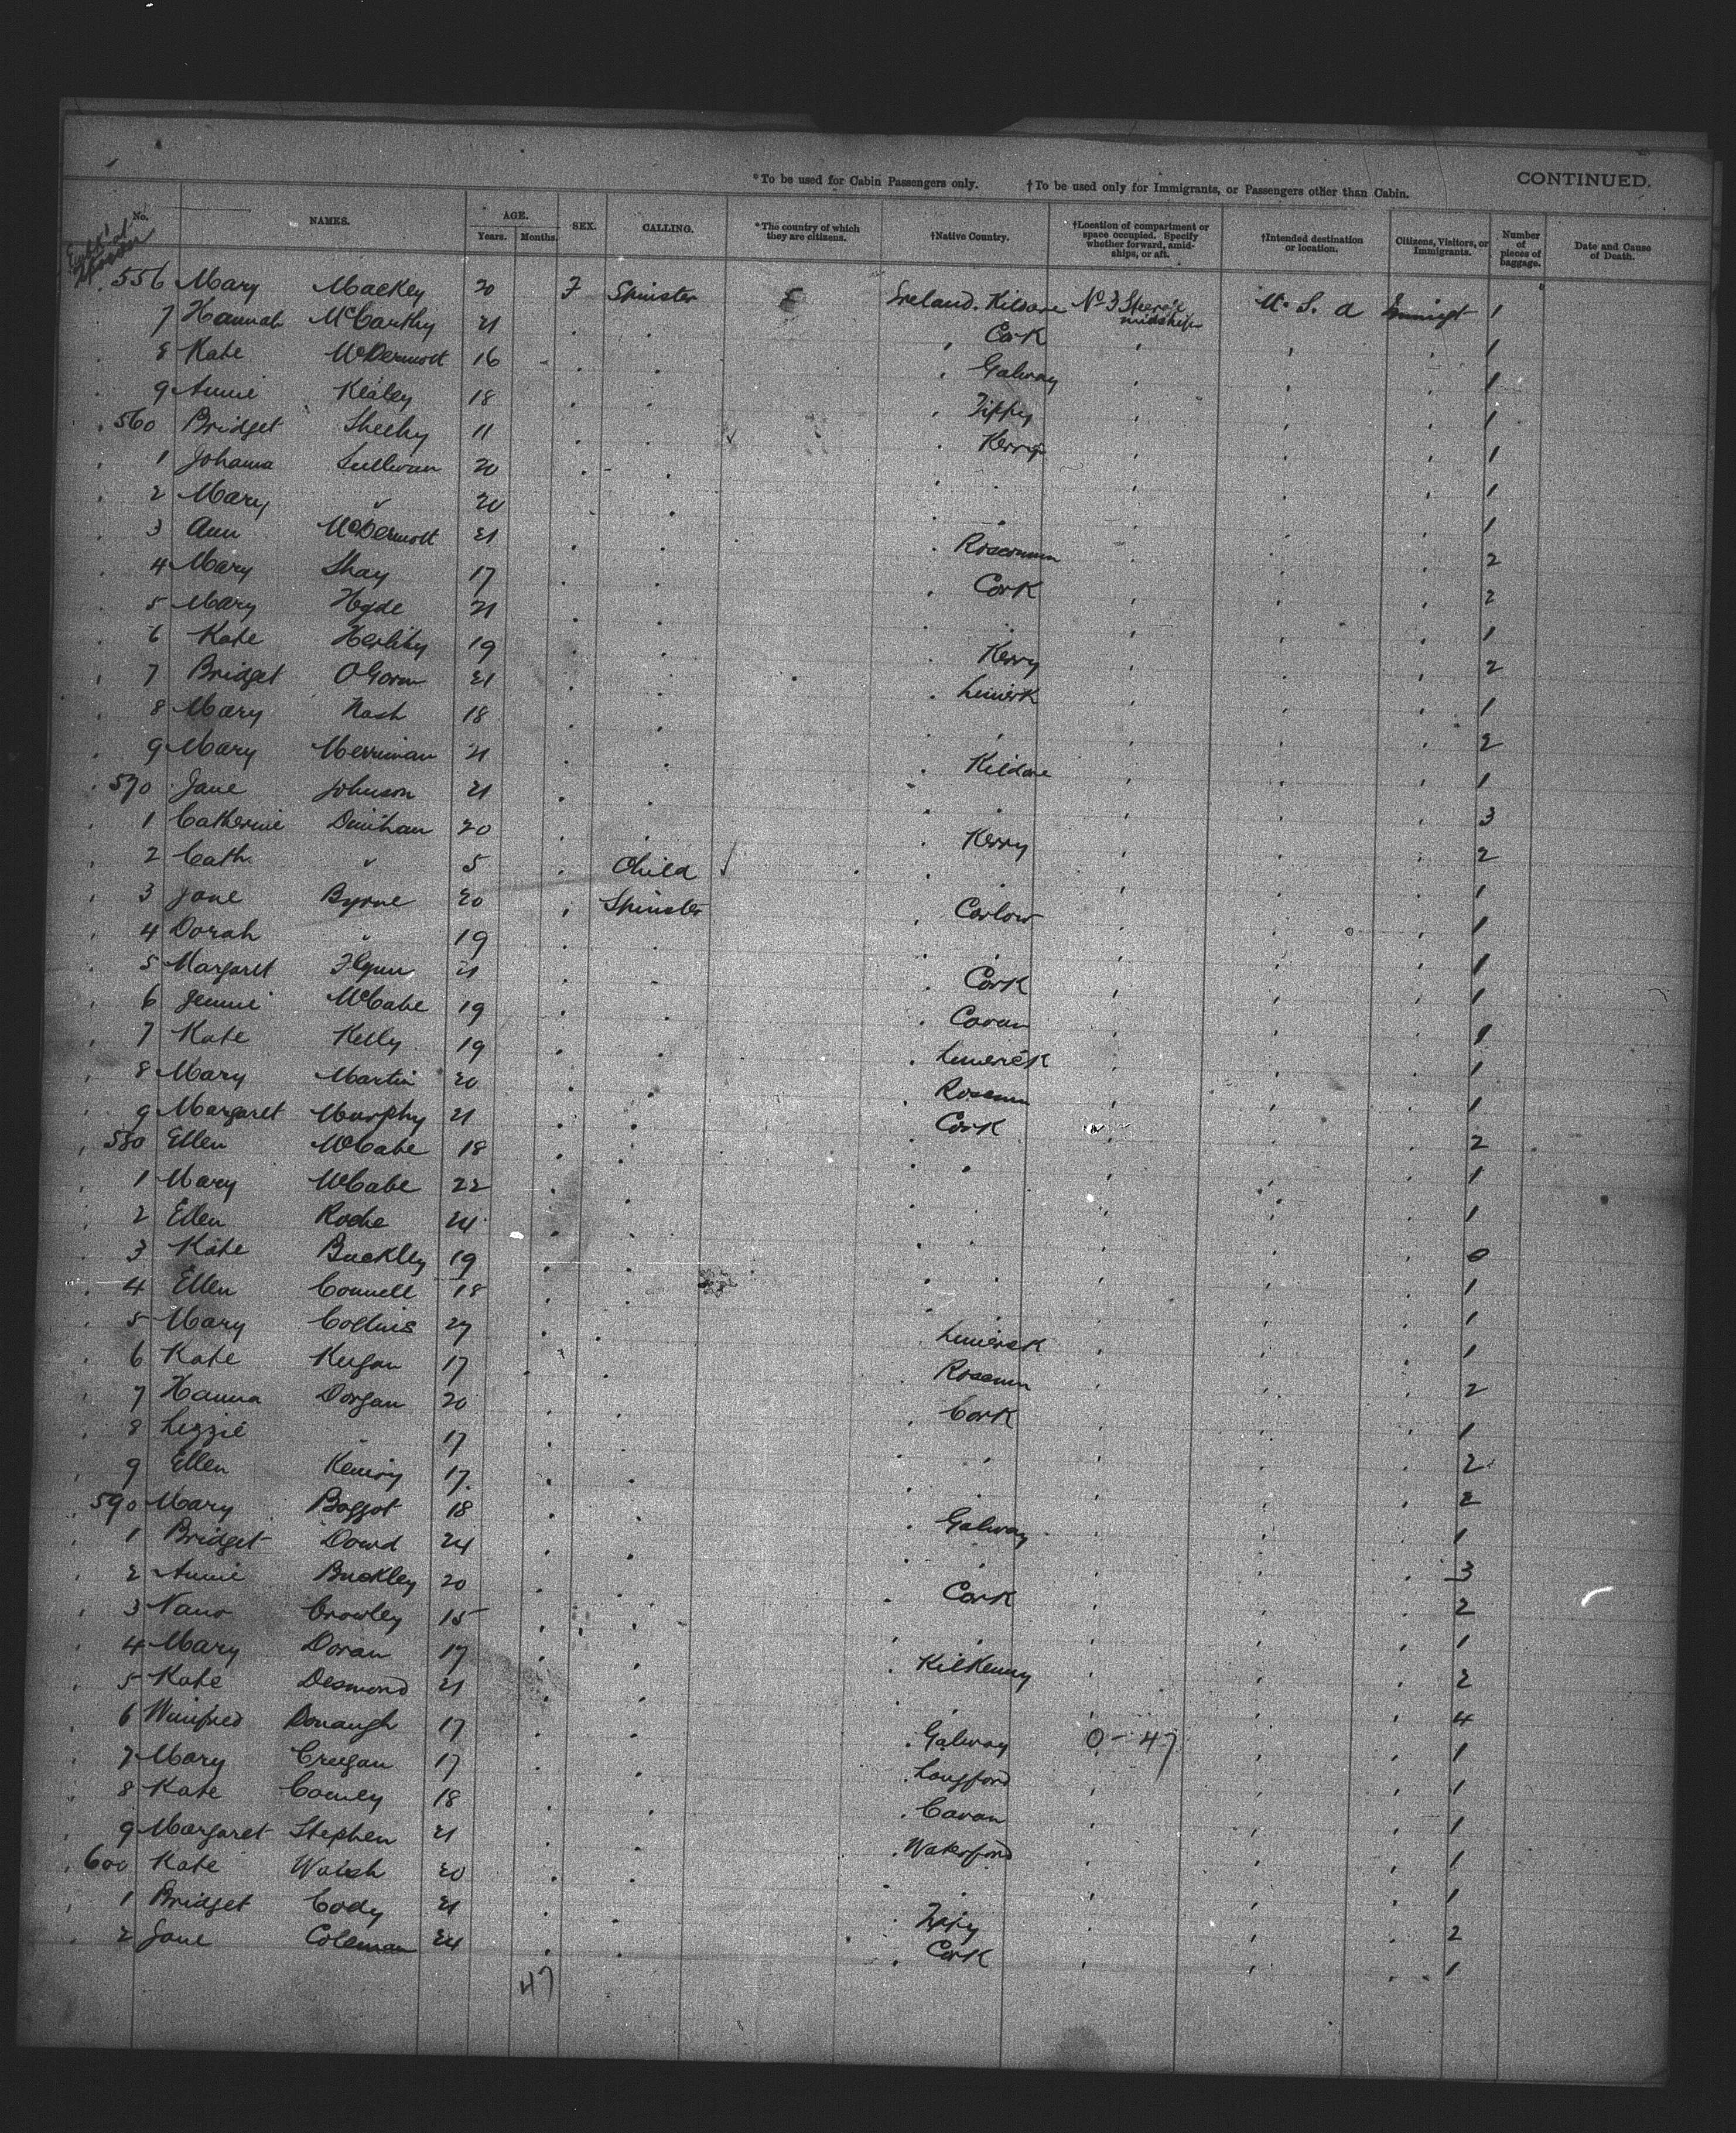 *To be used for Cabin Passengers only. †To be used only for Immigrants, or Passengers other than Cabin. CONTINUED.
No. NAMES. AGE. Years. Months. SEX. CALLING. *The country of which they are citizens. †Native Country. †Location of compartment or space occupied. Specify whether forward, amidships, or aft. †Intended destination or location. Citizens, Visitors, or Immigrants. Number of pieces of baggage. Date and Cause of Death.
556 Mary Mackey 20 F Spinster Ireland. Kildare No 3 Steerage midships U. S. A 1
7 Hannah McCarthy 21 Cork 1
8 Kate McDermott 16 Galway 1
9 Annie Kealey 18 Tippy 1
560 Bridget Sheehy 11 Kerry 1
1 Johanna Sullivan 20 1
2 Mary " 20 1
3 Ann McDermott 21 Roscommon 2
4 Mary Shay 17 Cork 2
5 Mary Hyde 21 1
6 Kate Herlihy 19 Kerry 2
7 Bridget 21 Limerick 1
8 Mary Nash 18 2
9 Mary Merriman 21 Kildare 1
570 Jane Johnson 21 3
1 Catherine Dinihan 20 Kerry 2
2 Cath. " 5 Child 1
3 Jane Byrne 20 Spinster Carlow 1
4 Dorah " 19 1
5 Margaret Flynn 21 Cork 1
6 Jennie McCabe 19 Cavan 1
7 Kate Kelly 19 Limerick 1
8 Mary Martin 20 Roscmn 1
9 Margaret Murphy 21 Cork 2
580 Ellen McCabe 18 1
1 Mary McCabe 22 1
2 Ellen Roche 24 0
3 Kate Buckley 19 1
4 Ellen Connell 18 1
5 Mary Collins 27 Limerick 1
6 Kate Keegan 17 Roscmn 2
7 Hanna Dorgan 20 Cork 1
8 Lizzie " 17 2
9 Ellen 17 2
590 Mary Baggot 18 Galway 1
1 Bridget Dowd 24 3
2 Annie Buckley 20 Cork 2
3 Nano Crowley 15 1
4 Mary Doran 17 Kilkenny 2
5 Kate Desmond 21 4
6 Winifred Donaugh 17 Galway 0-47 1
7 Mary Creegan 17 Longford 1
8 Kate 18 Cavan 1
9 Margaret Stephen 21 Waterford 1
600 Kate Walsh 20 1
1 Bridget Cody 21 Tippy 2
2 Jane Coleman 24 Cork 1
47